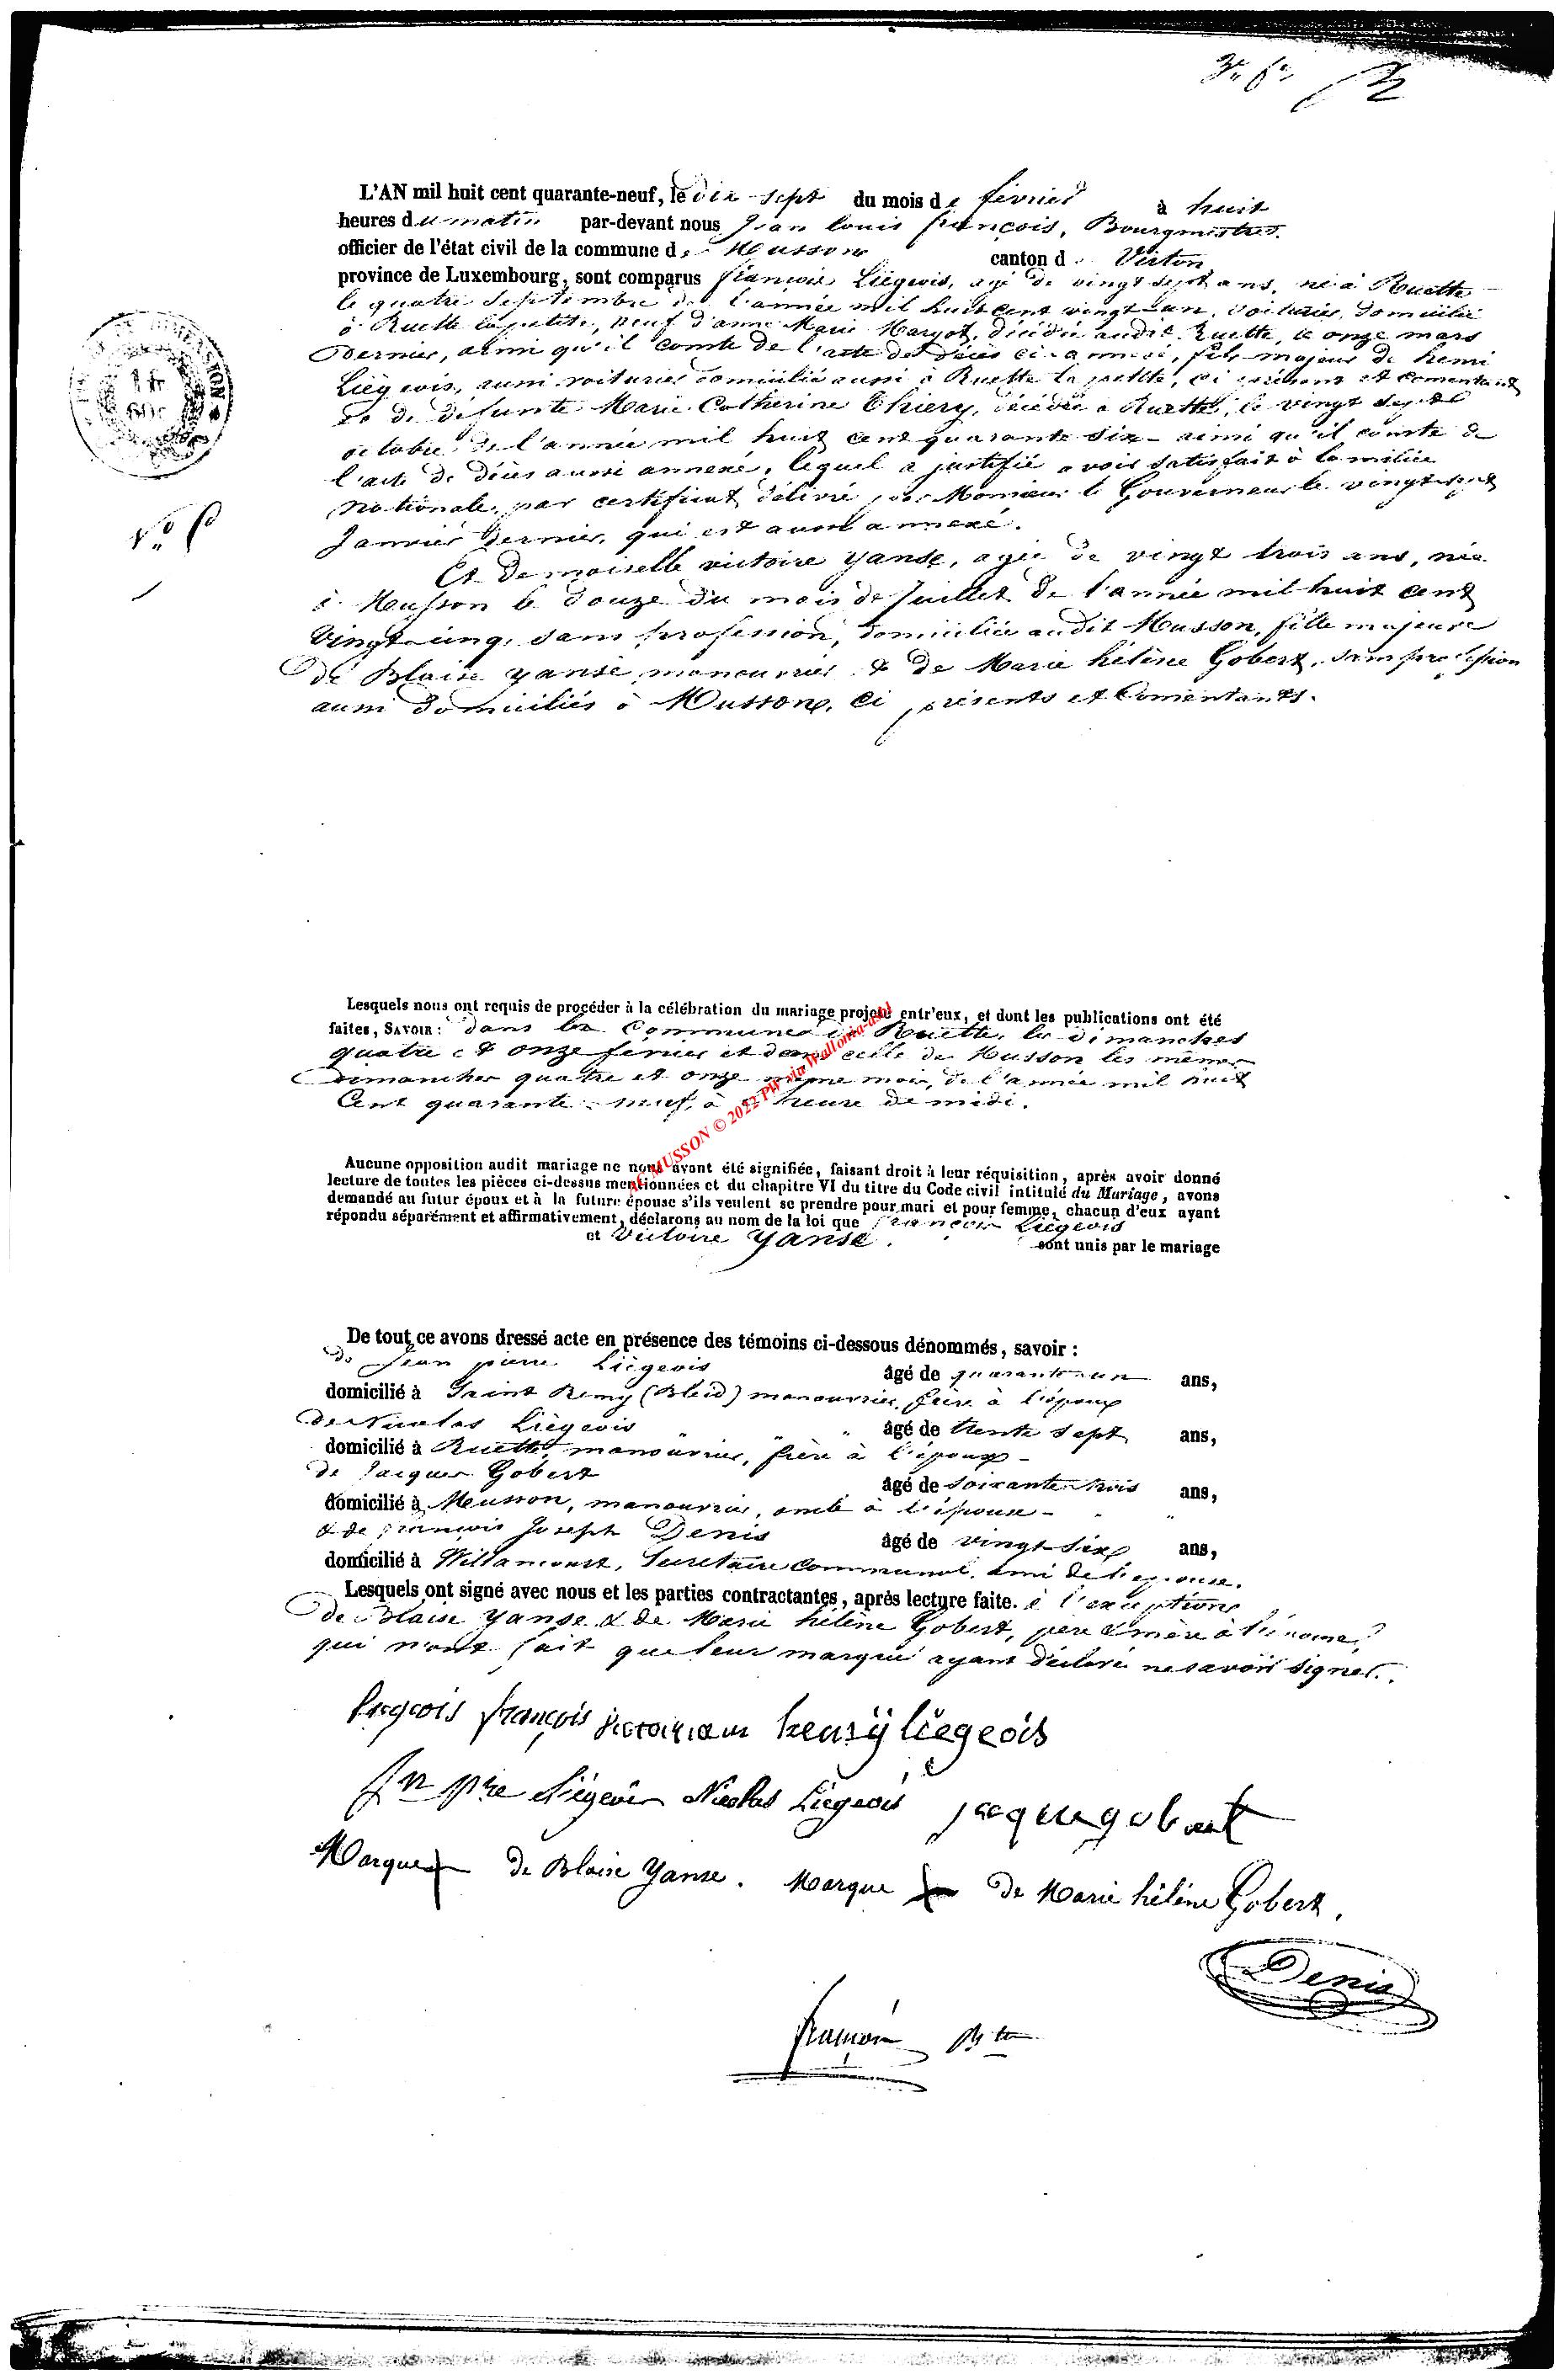 L'AN mil huit cent quarante-neuf, le dix sept du mois de février à huit
heures du matin par-devant nous Jean louis françois, Bourgmestre.
officier de l'état civil de la commune de Musson canton de Virton
province de Luxembourg, sont comparus françois Liégeois, agé de vingt sept ans, né à Ruette
le quatre septembre de l'année mil huit cent vingt-un, voiturier, domicilié
à Ruette la petite, veuf d'anne Marie Margot, décédée audit Ruette, le onze mars
dernier, ainsi qu'il conste de l'acte de décès ci-annexé, fils majeur de henri
Liégeois, aussi voiturier domicilié aussi à Ruette la petite, ci présent et consentant
et de défunte Marie Catherine Thiery, décédée à Ruette, le vingt sept
octobre de l'année mil huit cent quarante six - ainsi qu'il conste de
l'acte de décès aussi annexé, lequel a justifié avoir satisfait à la milice
nationale, par certificat délivré par Monsieur le Gouverneur le vingt sept
Janvier dernier, qui est aussi annexé.
Et demoiselle victoire yanse, agée de vingt trois ans, née
à Musson le douze du mois de Juillet de l'année mil huit cent
vingt-cinq, sans profession, domiciliée audit Musson, fille majeure
de Blaise yanse, manouvrier & de Marie hélène Gobert, sans profession
aussi domiciliés à Musson, ci présents et consentants.
1 fr
N° 8
Lesquels nous ont requis de procéder à la célébration du mariage projeté entr'eux, et dont les publications ont été
faites, SAVOIR : dans la Commune de Ruette, les dimanches
quatre et onze février et dans celle de Musson les mêmes
dimanches quatre et onze même mois, de l'année mil huit
Cent quarante-neuf, à heure de midi.
AC MUSSON © 2022 PW via Wallonia-asbl
Aucune opposition audit mariage ne nous ayant été signifiée, faisant droit à leur réquisition, après avoir donné
lecture de toutes les pièces ci-dessus mentionnées et du chapitre VI du titre du Code civil intitulé du Mariage, avons
demandé au futur époux et à la future épouse s'ils veulent se prendre pour mari et pour femme, chacun d'eux ayant
répondu séparément et affirmativement, déclarons au nom de la loi que françois Liégeois
et Victoire yanse. sont unis par le mariage
De tout ce avons dressé acte en présence des témoins ci-dessous dénommés, savoir :
de Jean pierre Liégeois âgé de quarante-un ans,
domicilié à Saint Remy (Bleid) manouvrier, frère à l'époux
de Nicolas Liégeois âgé de trente sept ans,
domicilié à Ruette, manouvrier, frère à l'époux -
de Jacques Gobert âgé de soixante-trois ans,
domicilié à Musson, manouvrier, oncle à l'épouse -
& de françois Joseph Denis âgé de vingt-six ans,
domicilié à Willancourt, Secrétaire communal, ami de l'épouse.
Lesquels ont signé avec nous et les parties contractantes, après lecture faite. à l'exception
de Blaise yanse & de Marie hélène Gobert, père & mère à l'épouse,
qui n'ont fait que leur marque ayant déclaré ne savoir signer.
liegeois françois henry liegeois
Jn pre Liégeois Nicolas Liégeois jacque gobert
Marque de Blaise yanse. Marque de Marie hélène Gobert.
Denis
françois